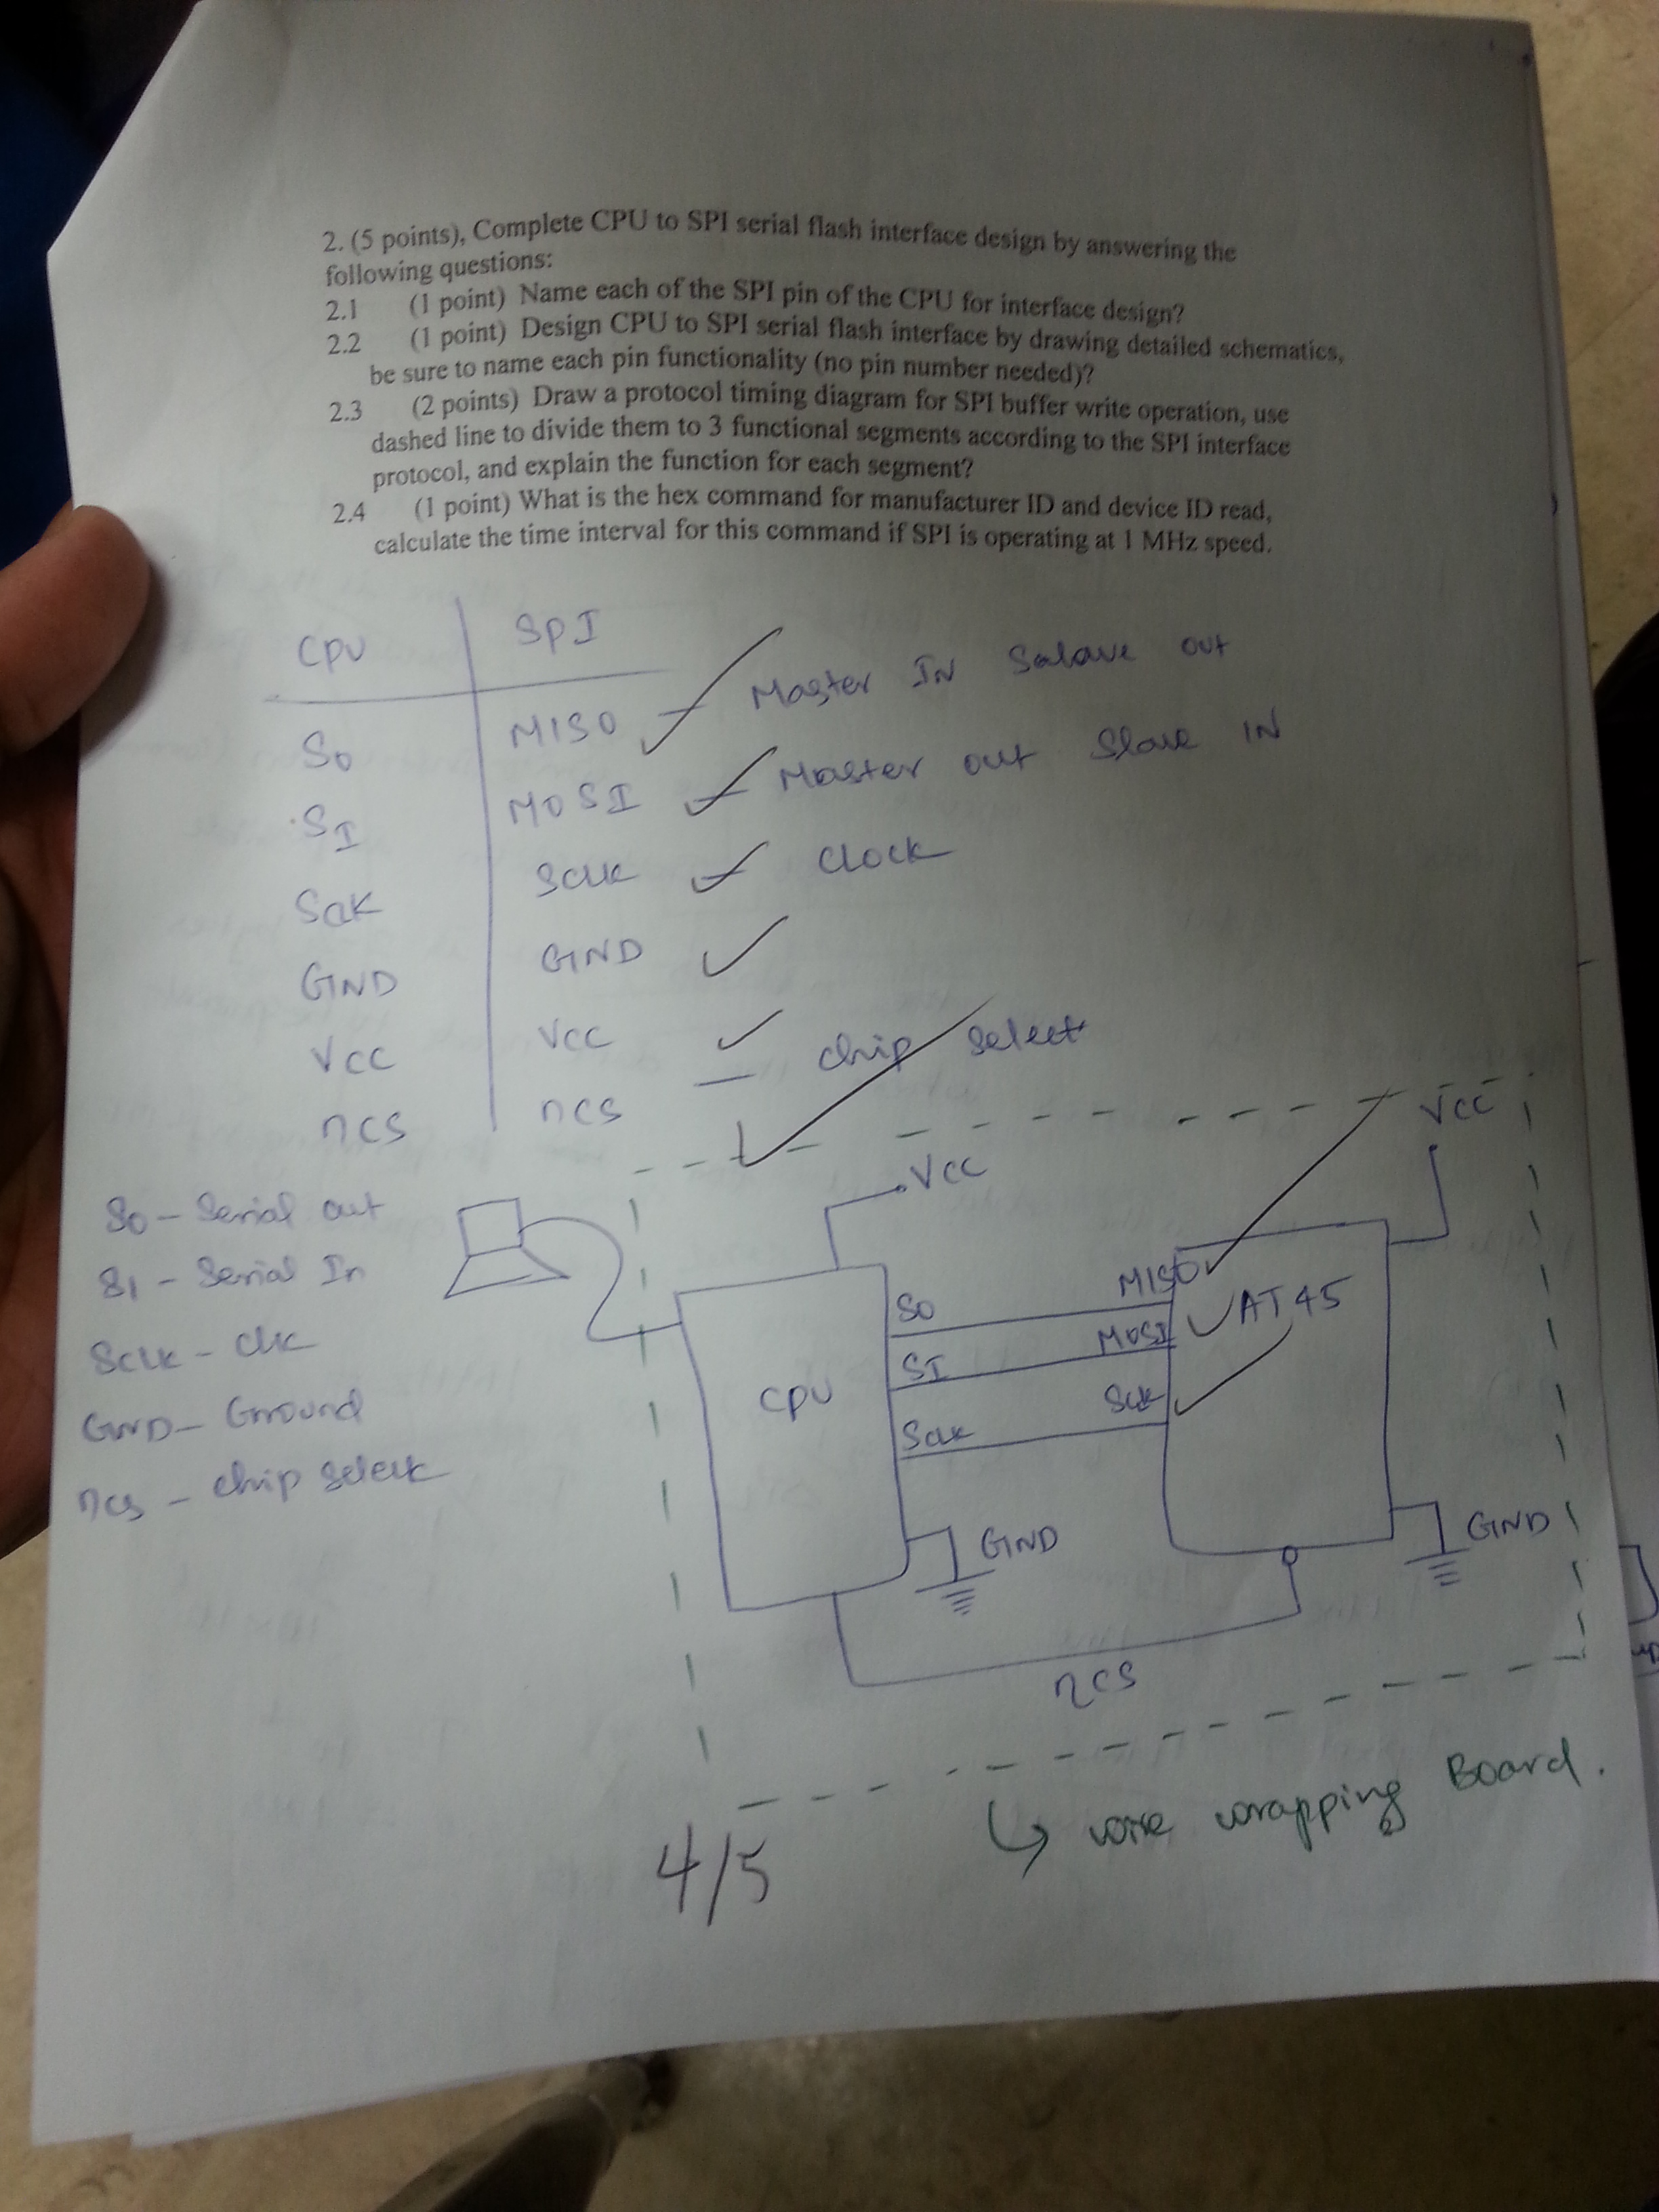 2. (5 points), Complete CPU to SPI serial flash interface design by answering the
following questions:
2.1 (1 point) Name each of the SPI pin of the CPU for interface design?
2.2 (1 point) Design CPU to SPI serial flash interface by drawing detailed schematics,
be sure to name each pin functionality (no pin number needed)?
2.3 (2 points) Draw a protocol timing diagram for SPI buffer write operation, use
dashed line to divide them to 3 functional segments according to the SPI interface
protocol, and explain the function for each segment?
2.4 (1 point) What is the hex command for manufacturer ID and device ID read,
calculate the time interval for this command if SPI is operating at 1 MHz speed.
CPU SPI
SO MISO – Master IN Salave out
SI MOSI – Master out Slave IN
Sclk Sclk – Clock
GND GND
VCC VCC
nCS nCS – chip select
SO – Serial out
SI – Serial In
Sclk – clk
GND – Ground
nCS – chip select
VCC
VCC
SO MISO
SI MOSI
AT45
CPU
Sclk Sclk
GND
GND
nCS
4/5
wire wrapping Board.